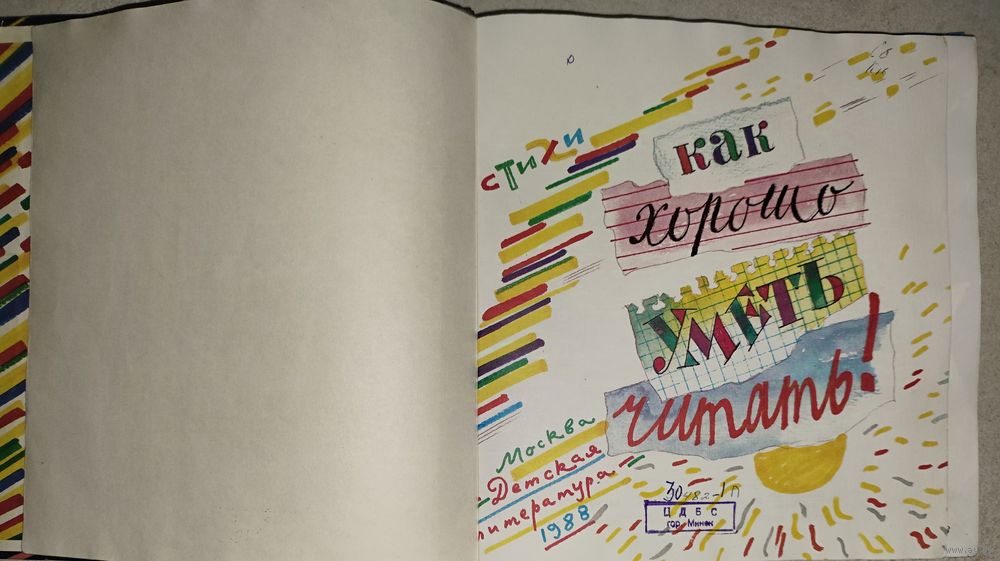 стихи
как
хорошо
уметь
читать!
Москва
Детская
литература
1988
30482-1 п
ЦДБС
гор. Минск